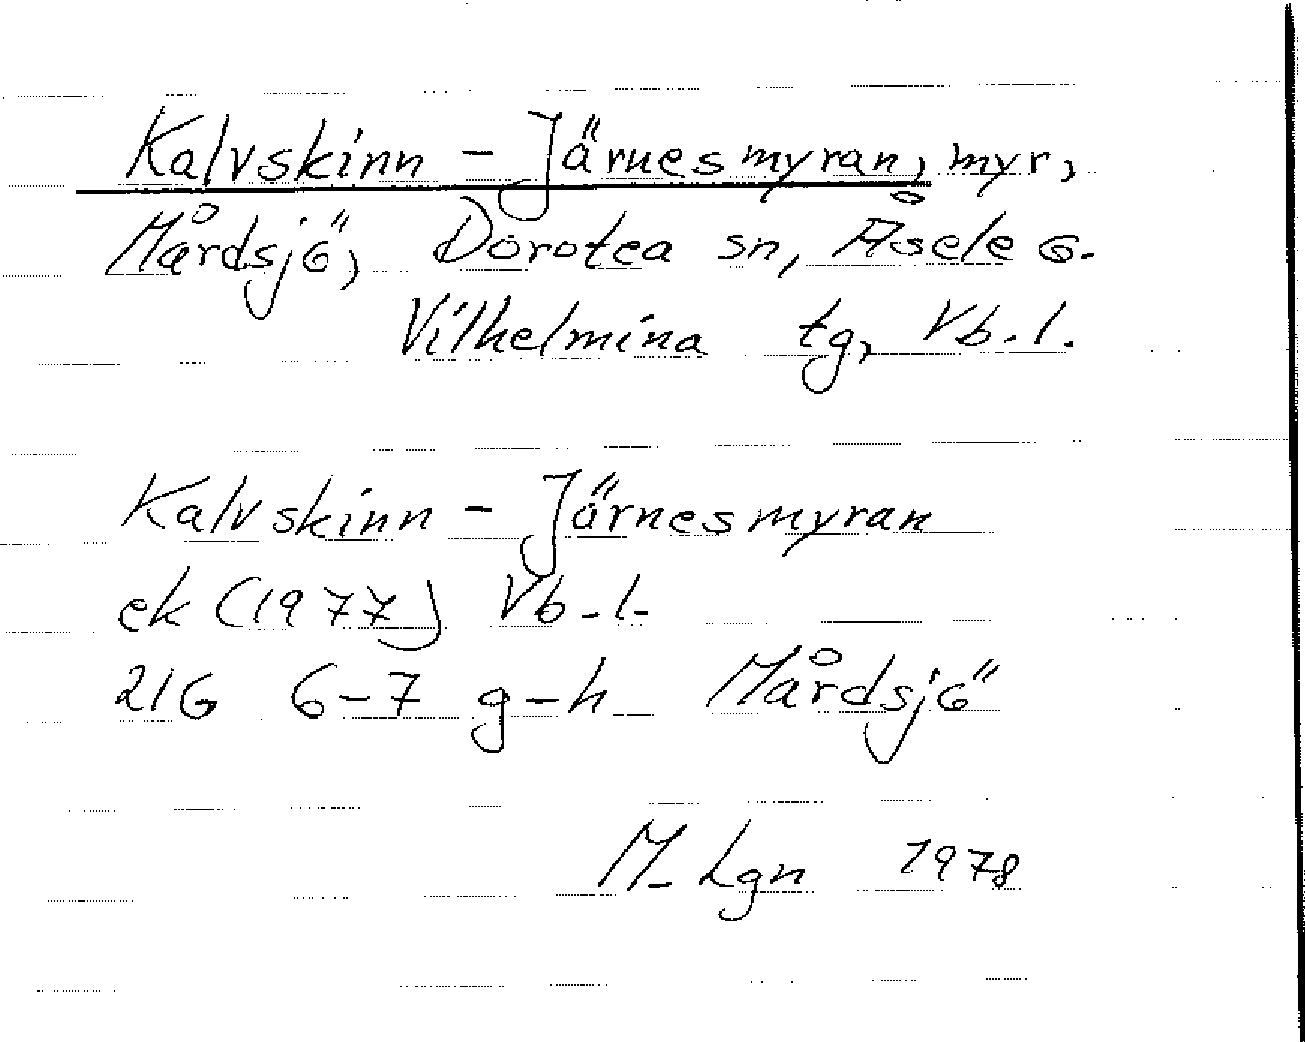 Kalvskinn - Järnesmyran, myr,
Mårdsjö, Dorotea sn, Åsele o.
Vilhelmina tg, Vb. l.
Kalvskinn - Järnesmyran
ek (1977) Vb. l.
21G 6-7 g-h Mårdsjö
M. Lgn 1978